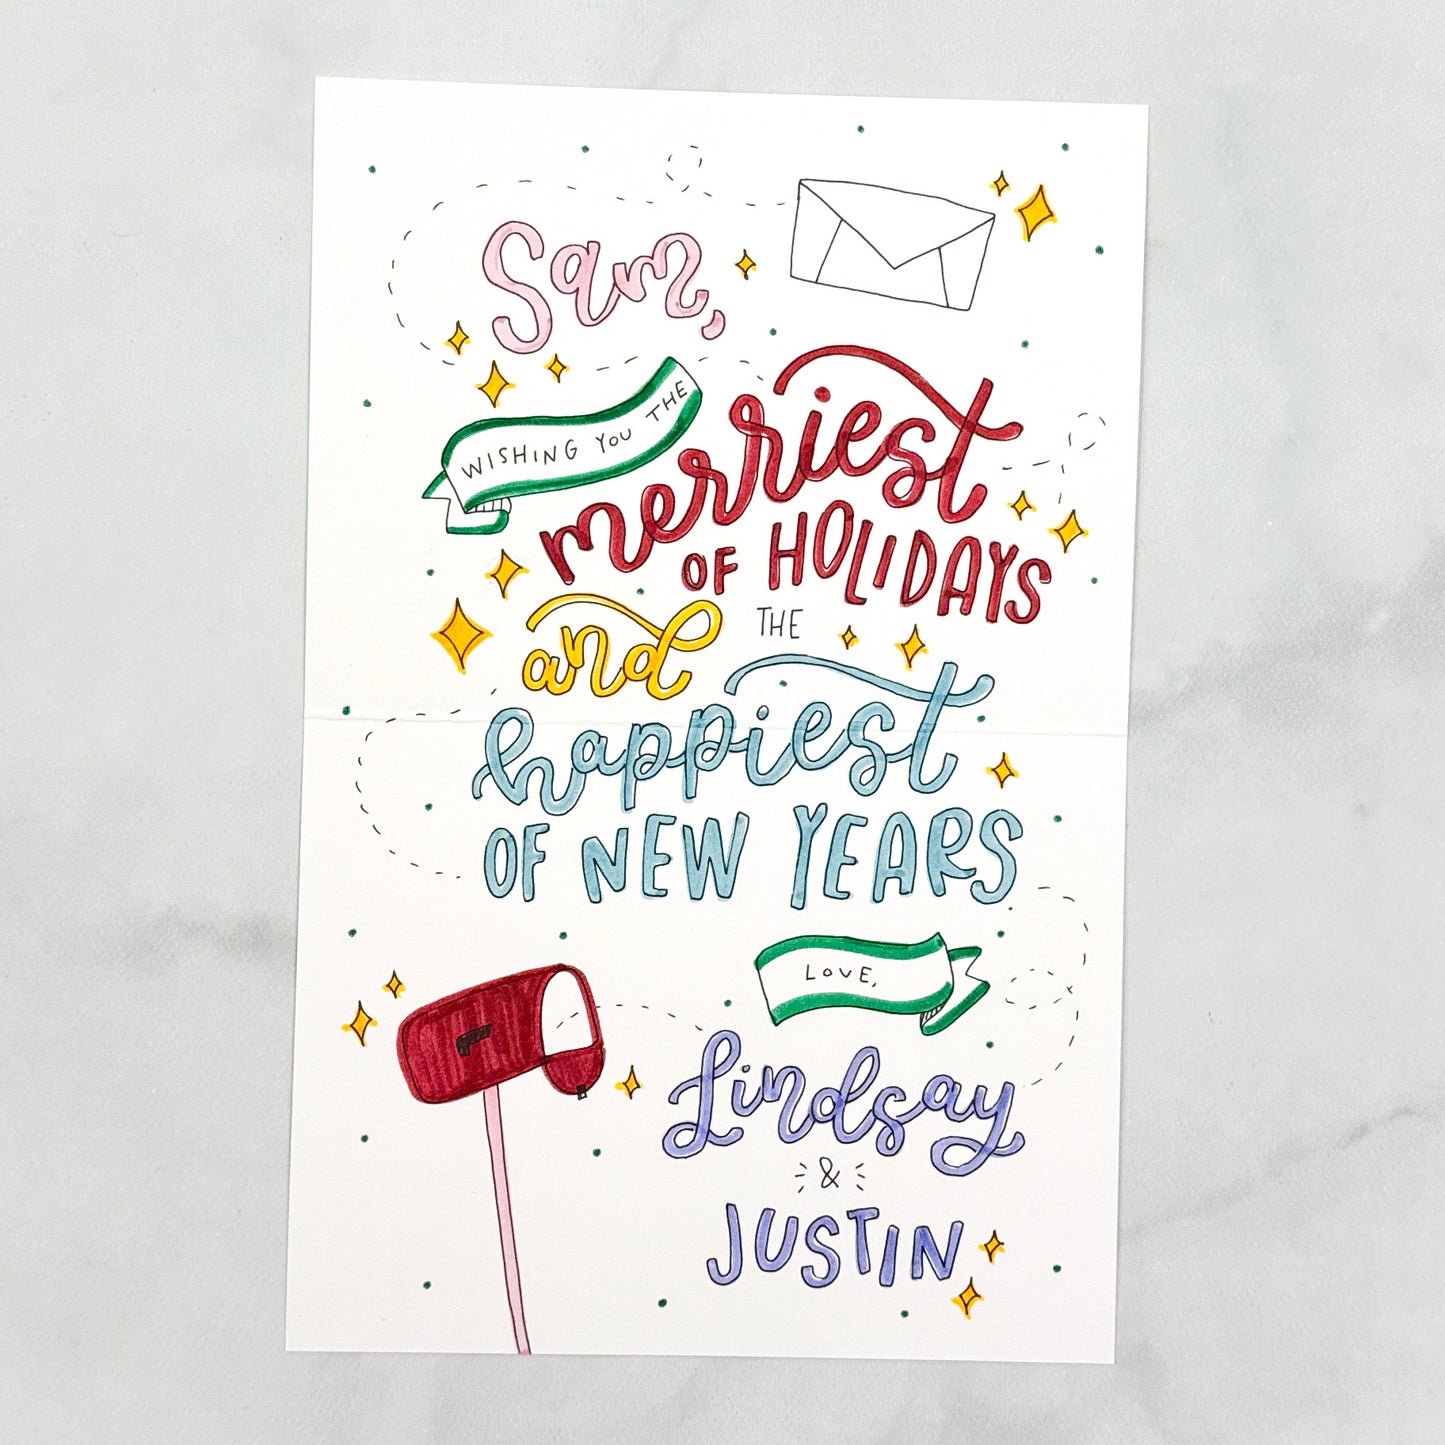 Sam,
WISHING YOU THE
merriest
OF HOLIDAYS
and THE
happiest
OF NEW YEARS
LOVE,
Lindsay
&
JUSTIN